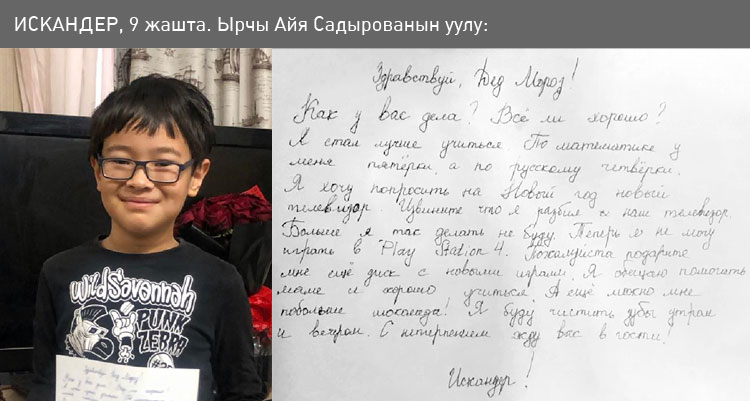 ИСКАНДЕР, 9 жашта. Ырчы Айя Садырованын уулу:
Здравствуй, Дед Мороз!
Как у вас дела? Всё ли хорошо?
Я стал лучше учиться. По математике у
меня пятёрки, а по русскому четвёрки.
Я хочу попросить на Новый год новый
телевизор. Извините что я разбил наш телевизор.
Больше я так делать не буду. Теперь я не могу
играть в Play Station 4. Пожалуйста подарите
мне ещё диск с новыми играми. Я обещаю помогать
маме и хорошо учиться. А ещё можно мне
побольше шоколада! Я буду чистить зубы утром
и вечером. С нетерпением жду вас в гости!
Искандер!
Wild Savannah
PUNK
ZEBRA
Здравствуй Дед Мороз!